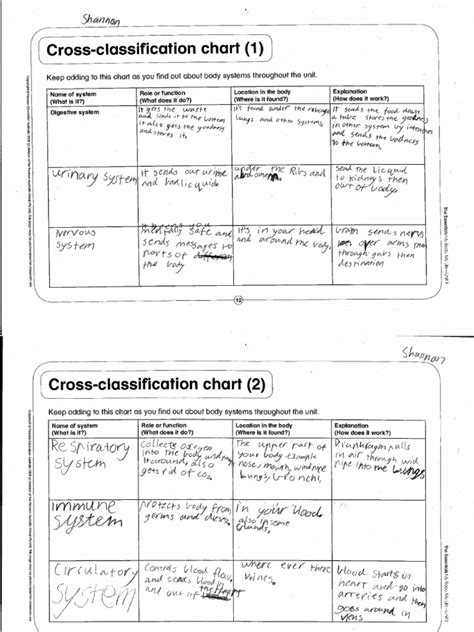 Shannon
Cross-classification chart (1)
Keep adding to this chart as you find out about body systems throughout the unit.
Name of system
(What is it?)
Role or function
(What does it do?)
Location in the body
(Where is it found?)
Explanation
(How does it work?)
Digestive system
It gets the waste
and sends it to the bottom
it also gets the goodness
and stores it.
It's found under the
lungs and other systems
It sends the food down
a tube stores the goodness
in other system by
and sends the badness
to the bottom.
Urinary system
It sends out urine
and bad liquid
under the Ribs and
abdomen
Send the Licquid
to kidneys then
out of body.
Nervous
system
mentally safe and
sends messages to
parts of
the body
it's in your head
and around the body.
brain sends nervs
over arms
through
destination
12
Shannon
Cross-classification chart (2)
Keep adding to this chart as you find out about body systems throughout the unit.
Name of system
(What is it?)
Role or function
(What does it do?)
Location in the body
(Where is it found?)
Explanation
(How does it work?)
Respiratory
System
collects oxygen
into the body and
also
gets rid of co2.
The upper part of
your body example
nose, mouth, windpipe
Lungs, bronchi.
Diaphragm pulls
in air through wind
pipe into the Lungs
immune
system
protects body from
germs and
in your blood
also in some
Glands.
Circulatory
System
Controls blood flow
and sends blood in
and out of heart
where ever there
veines.
blood starts in
heart and go into
arteries and then
goes around in
veins